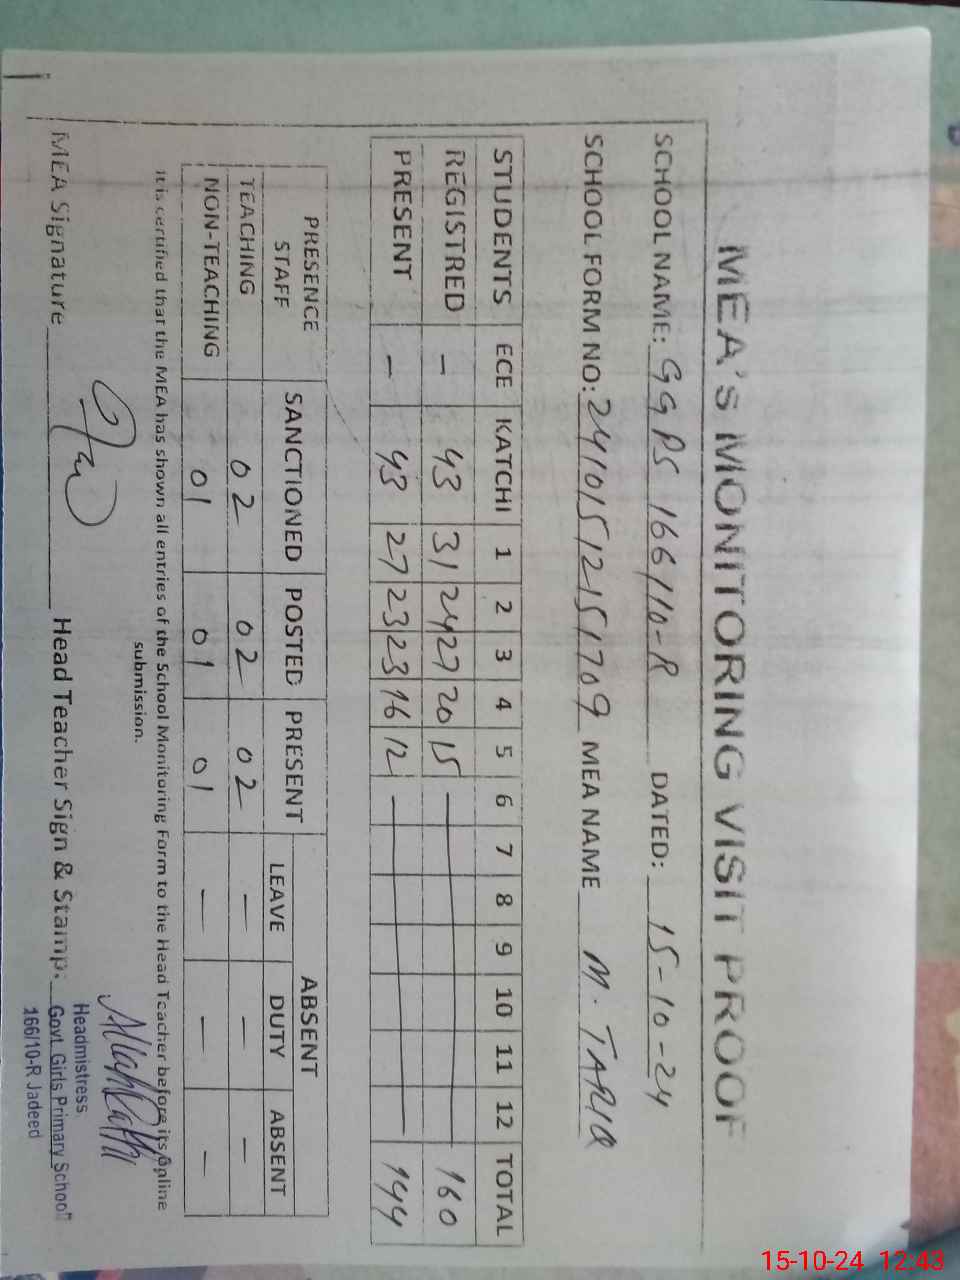 MEA's MONITORING VISIT PROOF
SCHOOL NAME: GGPS 166/10-R DATED: 15-10-24
SCHOOL FORM NO: 24101512151709 MEA NAME M. TARIQ
STUDENTS ECE KATCHI 1 2 3 4 5 6 7 8 9 10 11 12 TOTAL
REGISTRED - 43 31 24 27 20 15 — 160
PRESENT - 43 27 23 23 16 12 — 144
PRESENCE STAFF SANCTIONED POSTED PRESENT ABSENT
LEAVE DUTY ABSENT
TEACHING 02 02 02 — — —
NON-TEACHING 01 01 01 — — —
It is certified that the MEA has shown all entries of the School Monitoring Form to the Head Teacher before its online
submission.
MEA Signature Head Teacher Sign & Stamp:
Headmistress
Govt. Girls Primary School
166/10-R Jadeed
15-10-24 12:43